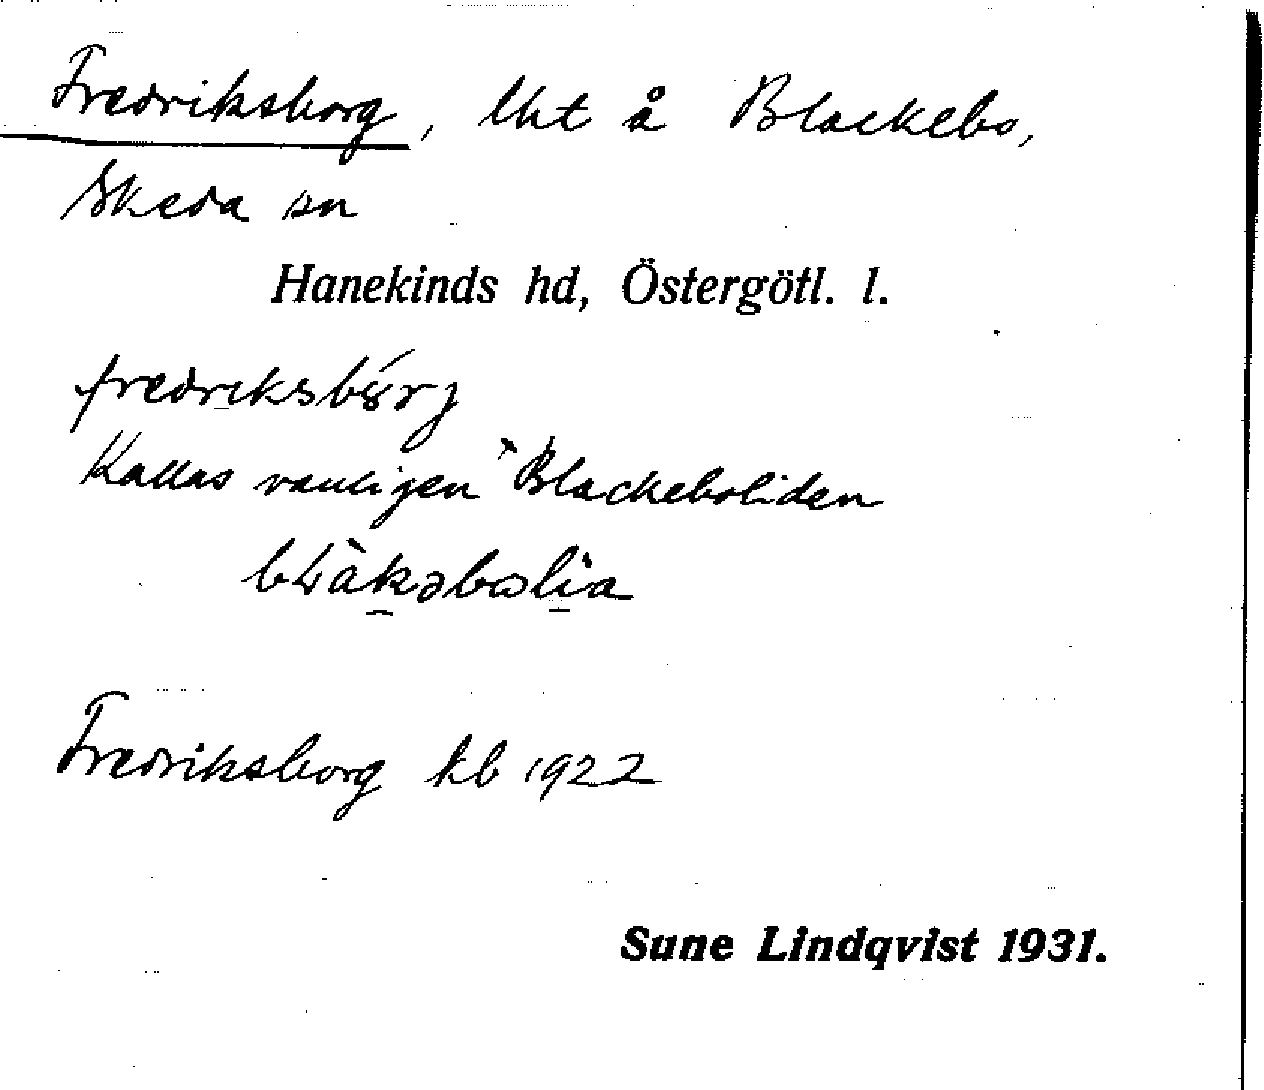 Fredriksborg, lht å Blackebo,
Skeda sn
Hanekinds hd, Östergötl. l.
Kallas vanligen Blackeboliden
Fredriksborg kb 1922
Sune Lindqvist 1931.